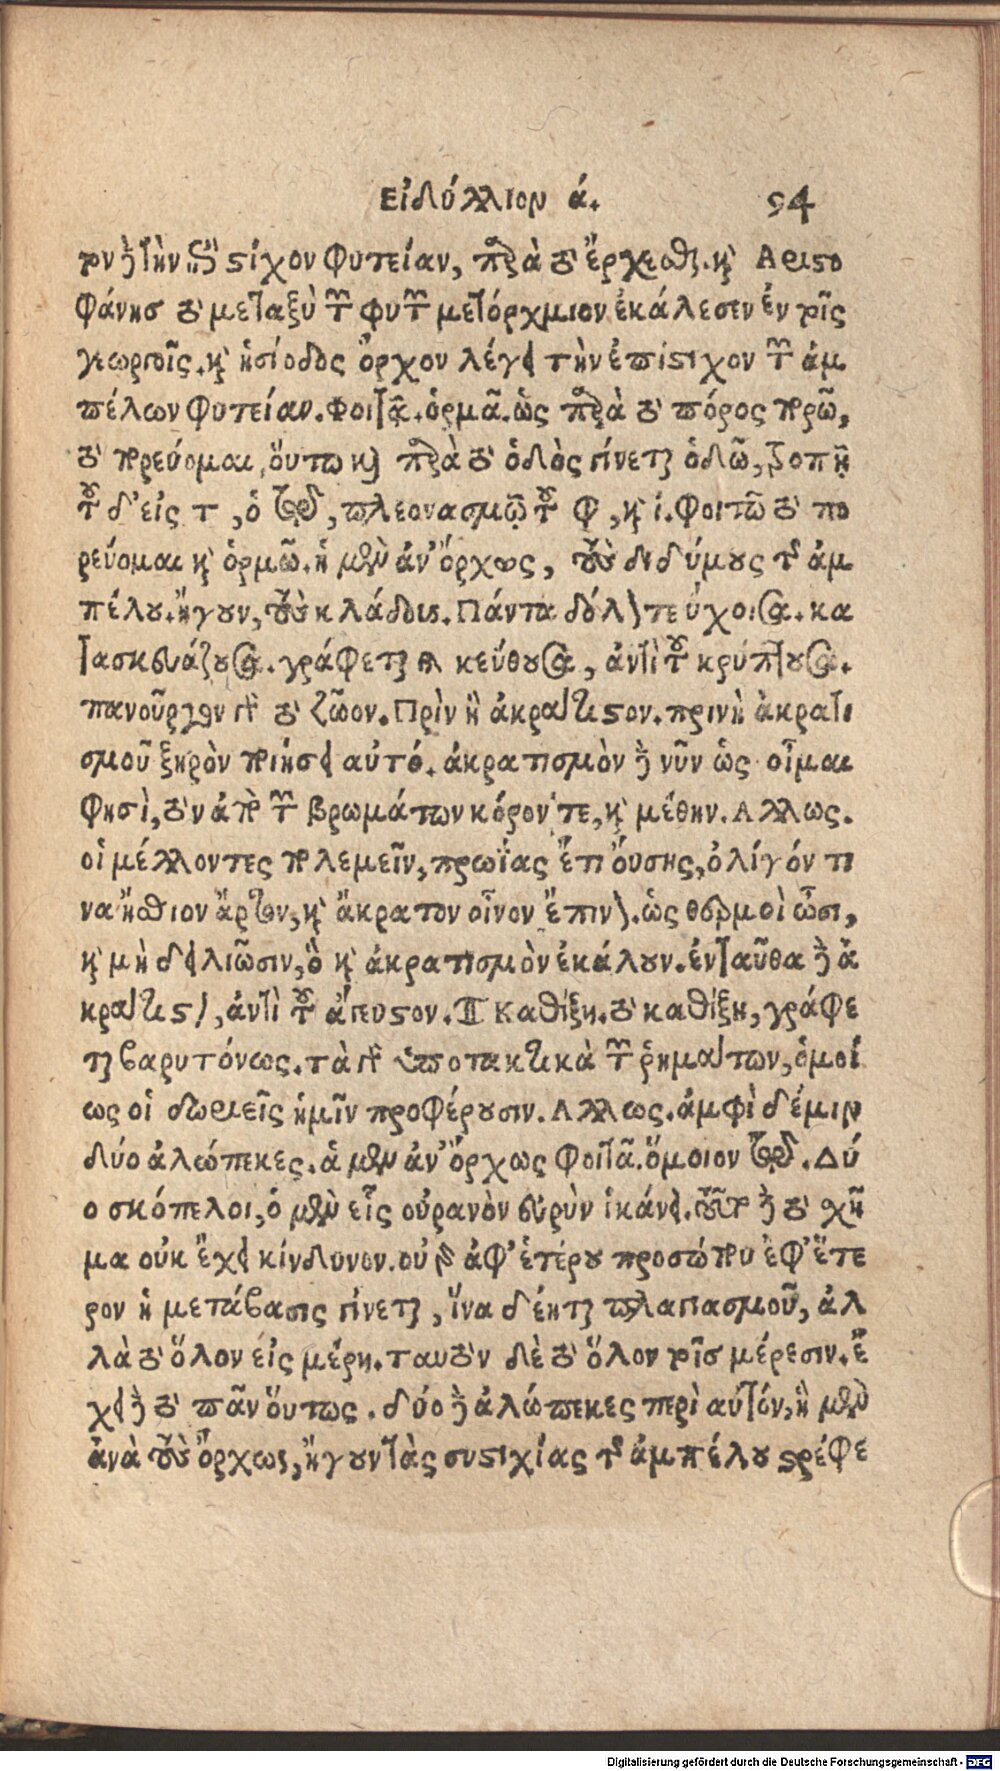 Εἰδύλλιον ά. 94
τον δὲ τὴν ἐπίστιχον φυτείαν, παρὰ τὸ ἔρχεσθαι. καὶ Ἀριστο
φάνης τὸ μεταξὺ τῶν φυτῶν μετόρχμιον ἐκάλεσεν ἐν τοῖς
γεωργοῖς. καὶ ἡσίοδος ὄρχον λέγει τὴν ἐπίστιχον τῶν ἀμ
πέλων φυτείαν. Φοιτᾷ. ὁρμᾶ. ὡς παρὰ τὸ πόρος πορῶ,
τὸ πορεύομαι, οὕτω καὶ παρὰ τὸ ὁδὸς γίνεται ὁδῶ, τροπῇ
τοῦ δ' εἰς τ, ὀτῶ, πλεονασμῷ τοῦ φ, καὶ ι. Φοιτῶ τὸ πο
ρεύομαι καὶ ὁρμῶ. ἡ μὲν ἀν' ὄρχως, τοὺς διδύμους τῆς ἀμ
πέλου. ἤγουν, τοὺς κλάδους. Πάντα δόλον τεύχοισα. κα
τασκευάζουσα. γράφεται καὶ κεύθουσα, ἀντὶ τοῦ κρύπτουσα.
πανοῦργον γὰρ τὸ ζῶον. Πρὶν ἢ ἀκράτιστον. πρινὴ ἀκρατι
σμοῦ ξηρὸν ποιήσει αὐτό. ἀκρατισμὸν δὲ νῦν ὡς οἶμαι
φησὶ, τὸν ἀπὸ τῶν βρωμάτων κόρον τε, καὶ μέθην. Ἄλλως.
οἱ μέλλοντες πολεμεῖν, πρωΐας ἔτι οὔσης, ὀλίγόν τι
να ἤσθιον ἄρτον, καὶ ἄκρατον οἶνον ἔπινον. ὡς θερμοὶ ὦσι,
καὶ μὴ δειλιῶσιν, ὃ καὶ ἀκρατισμὸν ἐκάλουν. ἐνταῦθα δὲ ἀ
κράτιστον, ἀντὶ τοῦ ἄγευστον. Ἐπὶ Καθίξη. τὸ καθίξη, γράφε
ται βαρυτόνως. τὰ γὰρ ὑποτακτικὰ τῶν ῥημάτων, ὁμοί
ως οἱ δωριεῖς ἡμῖν προφέρουσιν. Ἄλλως. ἀμφὶ δέ μιν
δύο ἀλώπεκες. ἁ μὲν ἀν' ὄρχως φοιτᾶ. ὅμοιον τῷ. Δύ
ο σκόπελοι, ὁ μὲν εἷς οὐρανὸν εὐρὺν ἱκάνει. τοῦτο δὲ τὸ σχῆ
μα οὐκ ἔχει κίνδυνον. οὐ γὰρ ἀφ' ἑτέρου προσώπου ἐφ' ἕτε
ρον ἡ μετάβασις γίνεται, ἵνα δέηται πλαγιασμοῦ, ἀλ
λὰ τὸ ὅλον εἰς μέρη. ταυτὸν δὲ τὸ ὅλον τοῖς μέρεσιν. ἔ
χει δὲ τὸ πᾶν οὕτως. δύο δὲ ἀλώπεκες περὶ αὐτόν, ἡ μὲν
ἀνὰ τοὺς ὄρχως, ἤγουν τὰς συστιχίας τῆς ἀμπέλου στρέφε
Digitalisierung gefördert durch die Deutsche Forschungsgemeinschaft - DFG